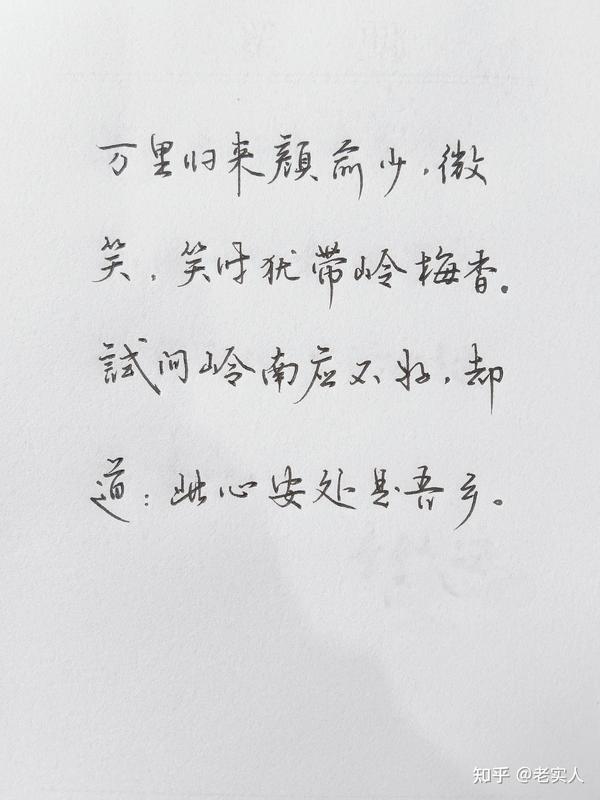 万里归来颜前少，微
笑，笑时犹带岭梅香。
試问岭南应不好，却
道：此心安处是吾乡。
知乎 @老实人